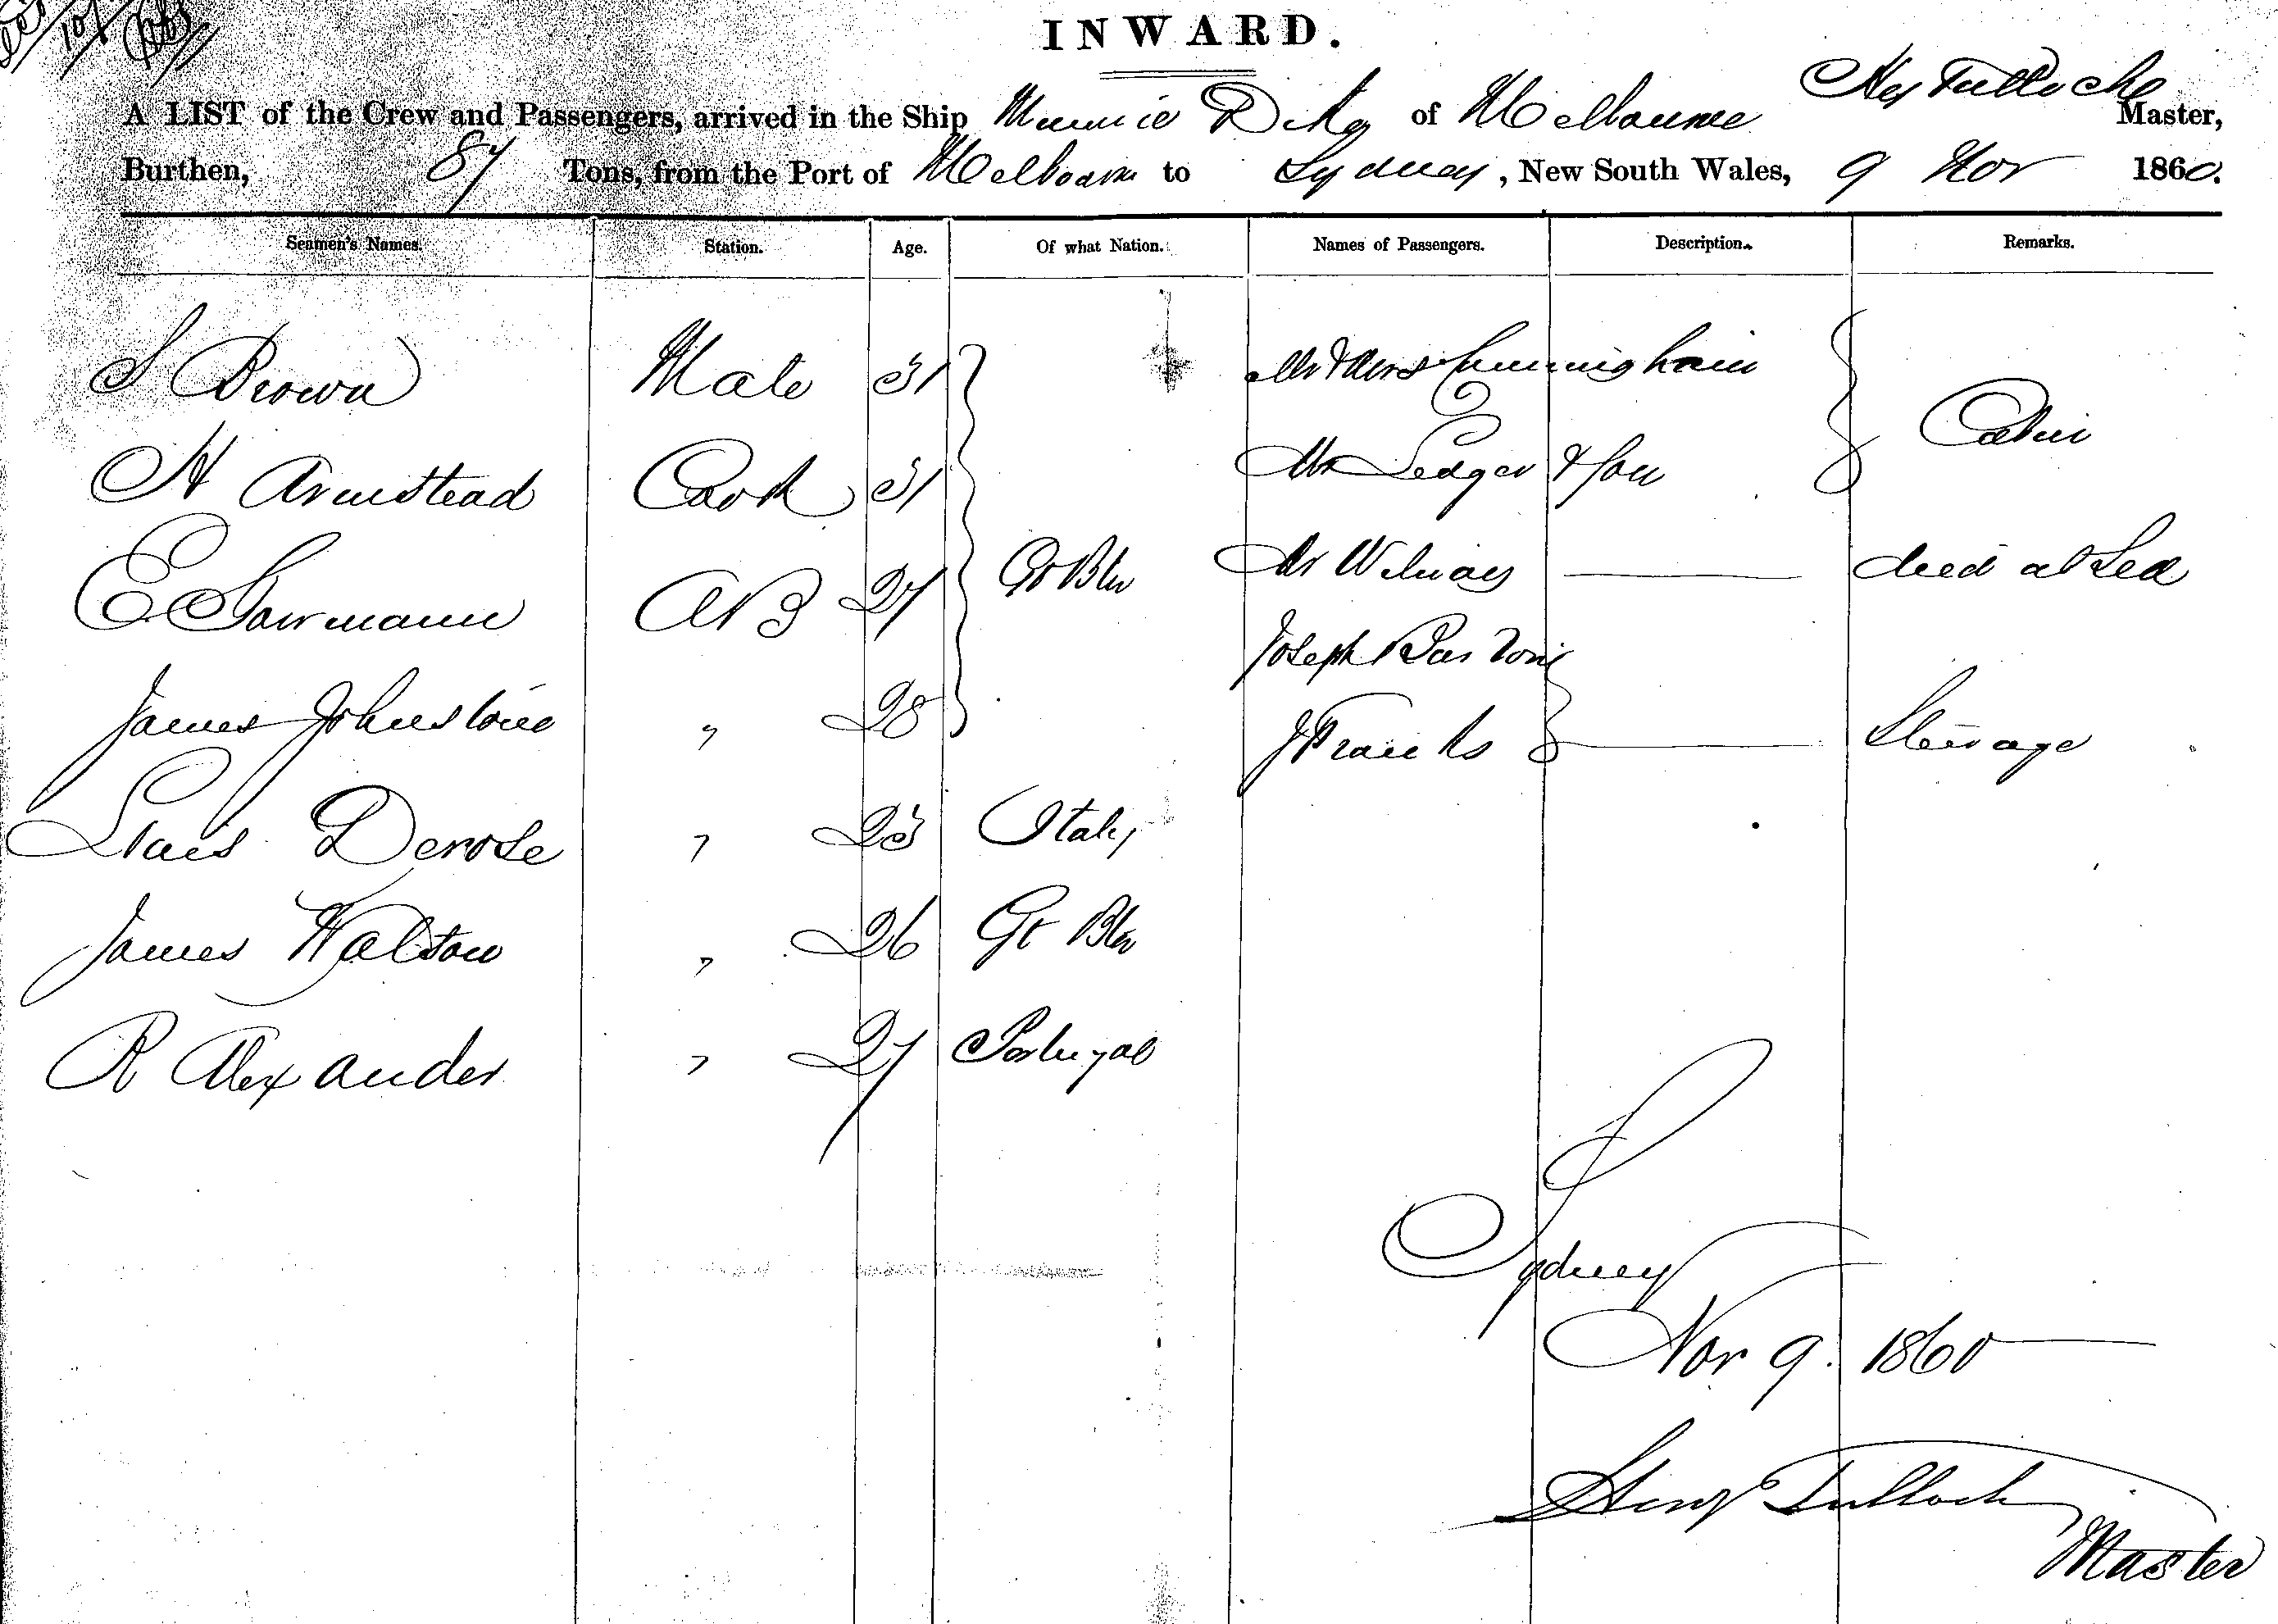 INWARD.
A LIST of the Crew and Passengers, arrived in the Ship Minnie Dike of Melbourne Hy Tulloch Master,
Burthen, 87 Tons, from the Port of Melbourne to Sydney, New South Wales, 9 Nov 1860.
Seamen's Names. Station. Age. Of what Nation. Names of Passengers. Description. Remarks.
S Brown Mate 31 Mr & Mrs Cunningham
H Armstead Cook 31 Mr Ledger & Son Cabin
E AB 27 Gt Btn Mr died at Sea
James Johnstone " 28 Joseph
J Franks Steerage
Louis Derose " 23 Italy
James Walton " 26 Gt Btn
R Alexander " 27 Portugal
Sydney
Nov 9. 1860
Henry Tulloch
Master